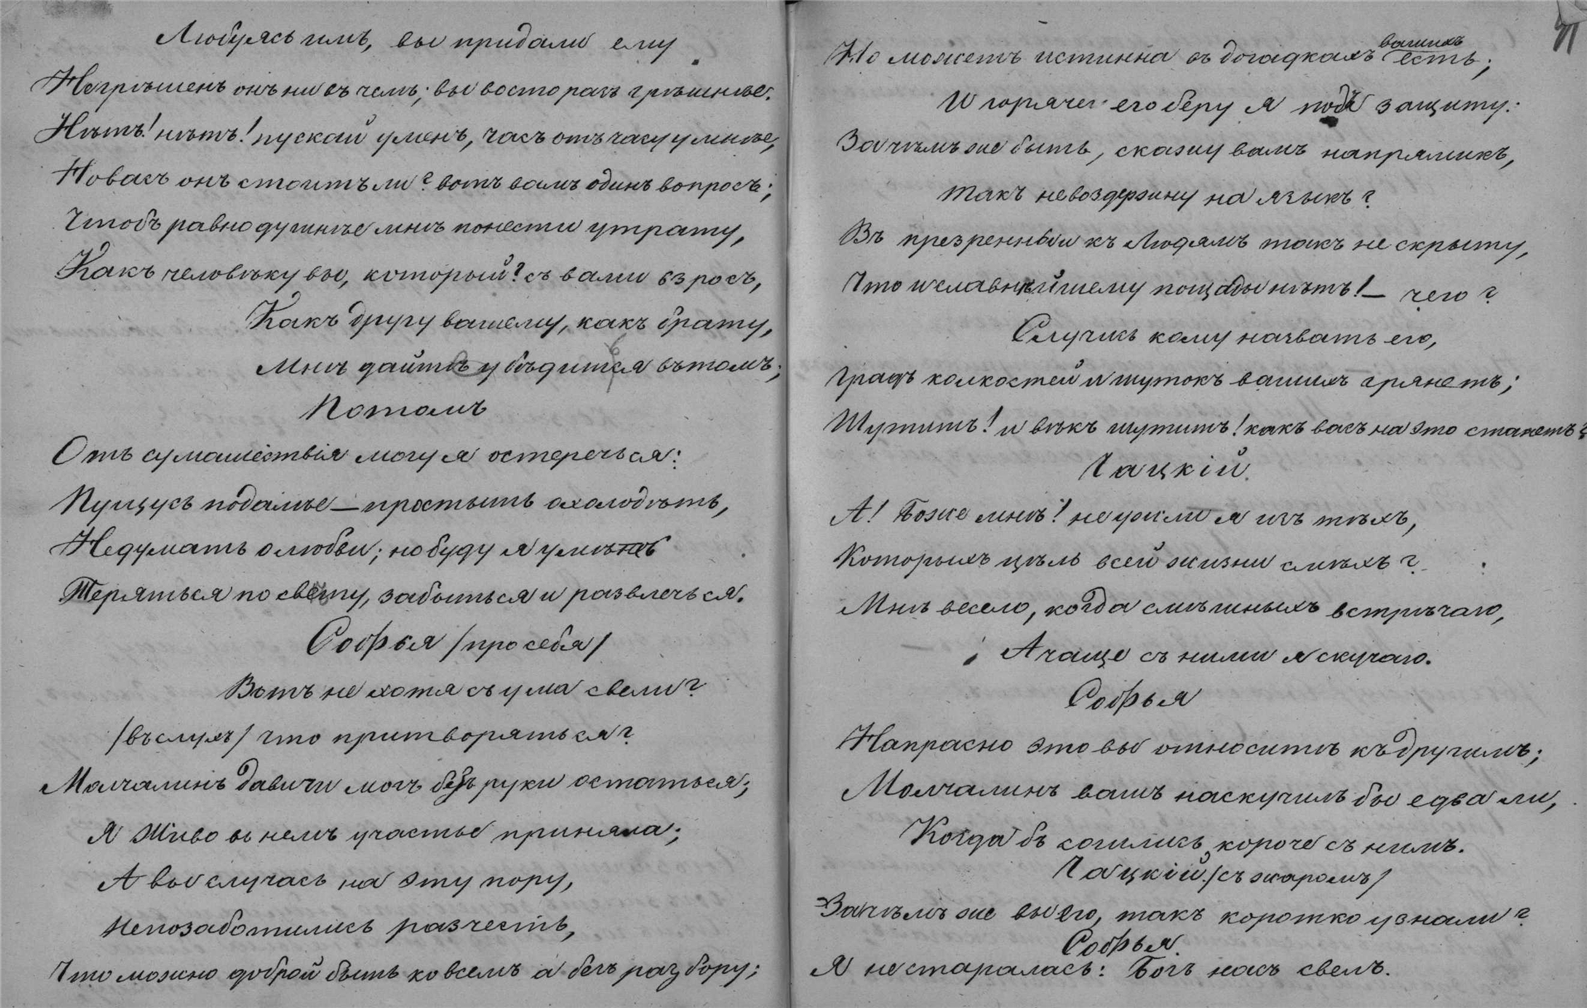 Любуясь имъ, вы придали ему
Негрѣшенъ онъ ни въ чемъ; вы во сто разъ грѣшнѣе.
Нѣтъ! нѣтъ! пускай уменъ, часъ отъ часу умнѣе,
Но васъ онъ стоитъ ли? вотъ вамъ одинъ вопросъ;
Чтобъ равнодушнѣе мнѣ понести утрату,
Какъ человѣку вы, который? съ вами взросъ,
Какъ другу вашему, какъ брату,
Мнѣ дайтѣ убѣдится въ томъ;
Потомъ
Отъ сумашествія могу я остеречься:
Пущусь подалѣе — простыть охолодѣть,
Недумать о любви; но буду я умѣть
Теряться по свѣту, забыться и развлечься.
Софья /про себя/
Вотъ не хотя съ ума свели?
/въ слухъ/ Что притворяться?
Молчалинъ давичи могъ безъ руки остаться;
Я живо въ немъ участье приняла;
А вы случась на эту пору,
Непозаботились разчесть,
Что можно доброй быть ко всемъ а безъ разбору;
Но можетъ истинна въ догадкахъ вашихъ есть;
И горячо его беру я подъ защиту:
Зачѣмъ же быть, скажу вамъ напрямикъ,
Такъ невоздержну на языкъ?
Въ презреньи къ людямъ такъ не скрыту,
Что и славнѣйшему пощады нѣтъ! — чего?
Случись кому назвать его,
Градъ колкостей и шутокъ вашихъ грянетъ;
Шутить! и вѣкъ шутить! какъ васъ на это станетъ?
Чацкій.
А! Боже мнѣ! неужли я изъ тѣхъ,
Которыхъ цѣль всей жизни смѣхъ?
Мнѣ весело, когда смѣшныхъ встрѣчаю,
А чаще съ ними я скучаю.
Софья
Напрасно это вы относитѣ къ другимъ;
Молчалинъ вамъ наскучилъ бы едва ли,
Когда бъ сошлись короче съ нимъ.
Чацкій /съ жаромъ/
Зачѣмъ же вы его, такъ коротко узнали?
Софья.
Я нестаралась: Богъ насъ свелъ.